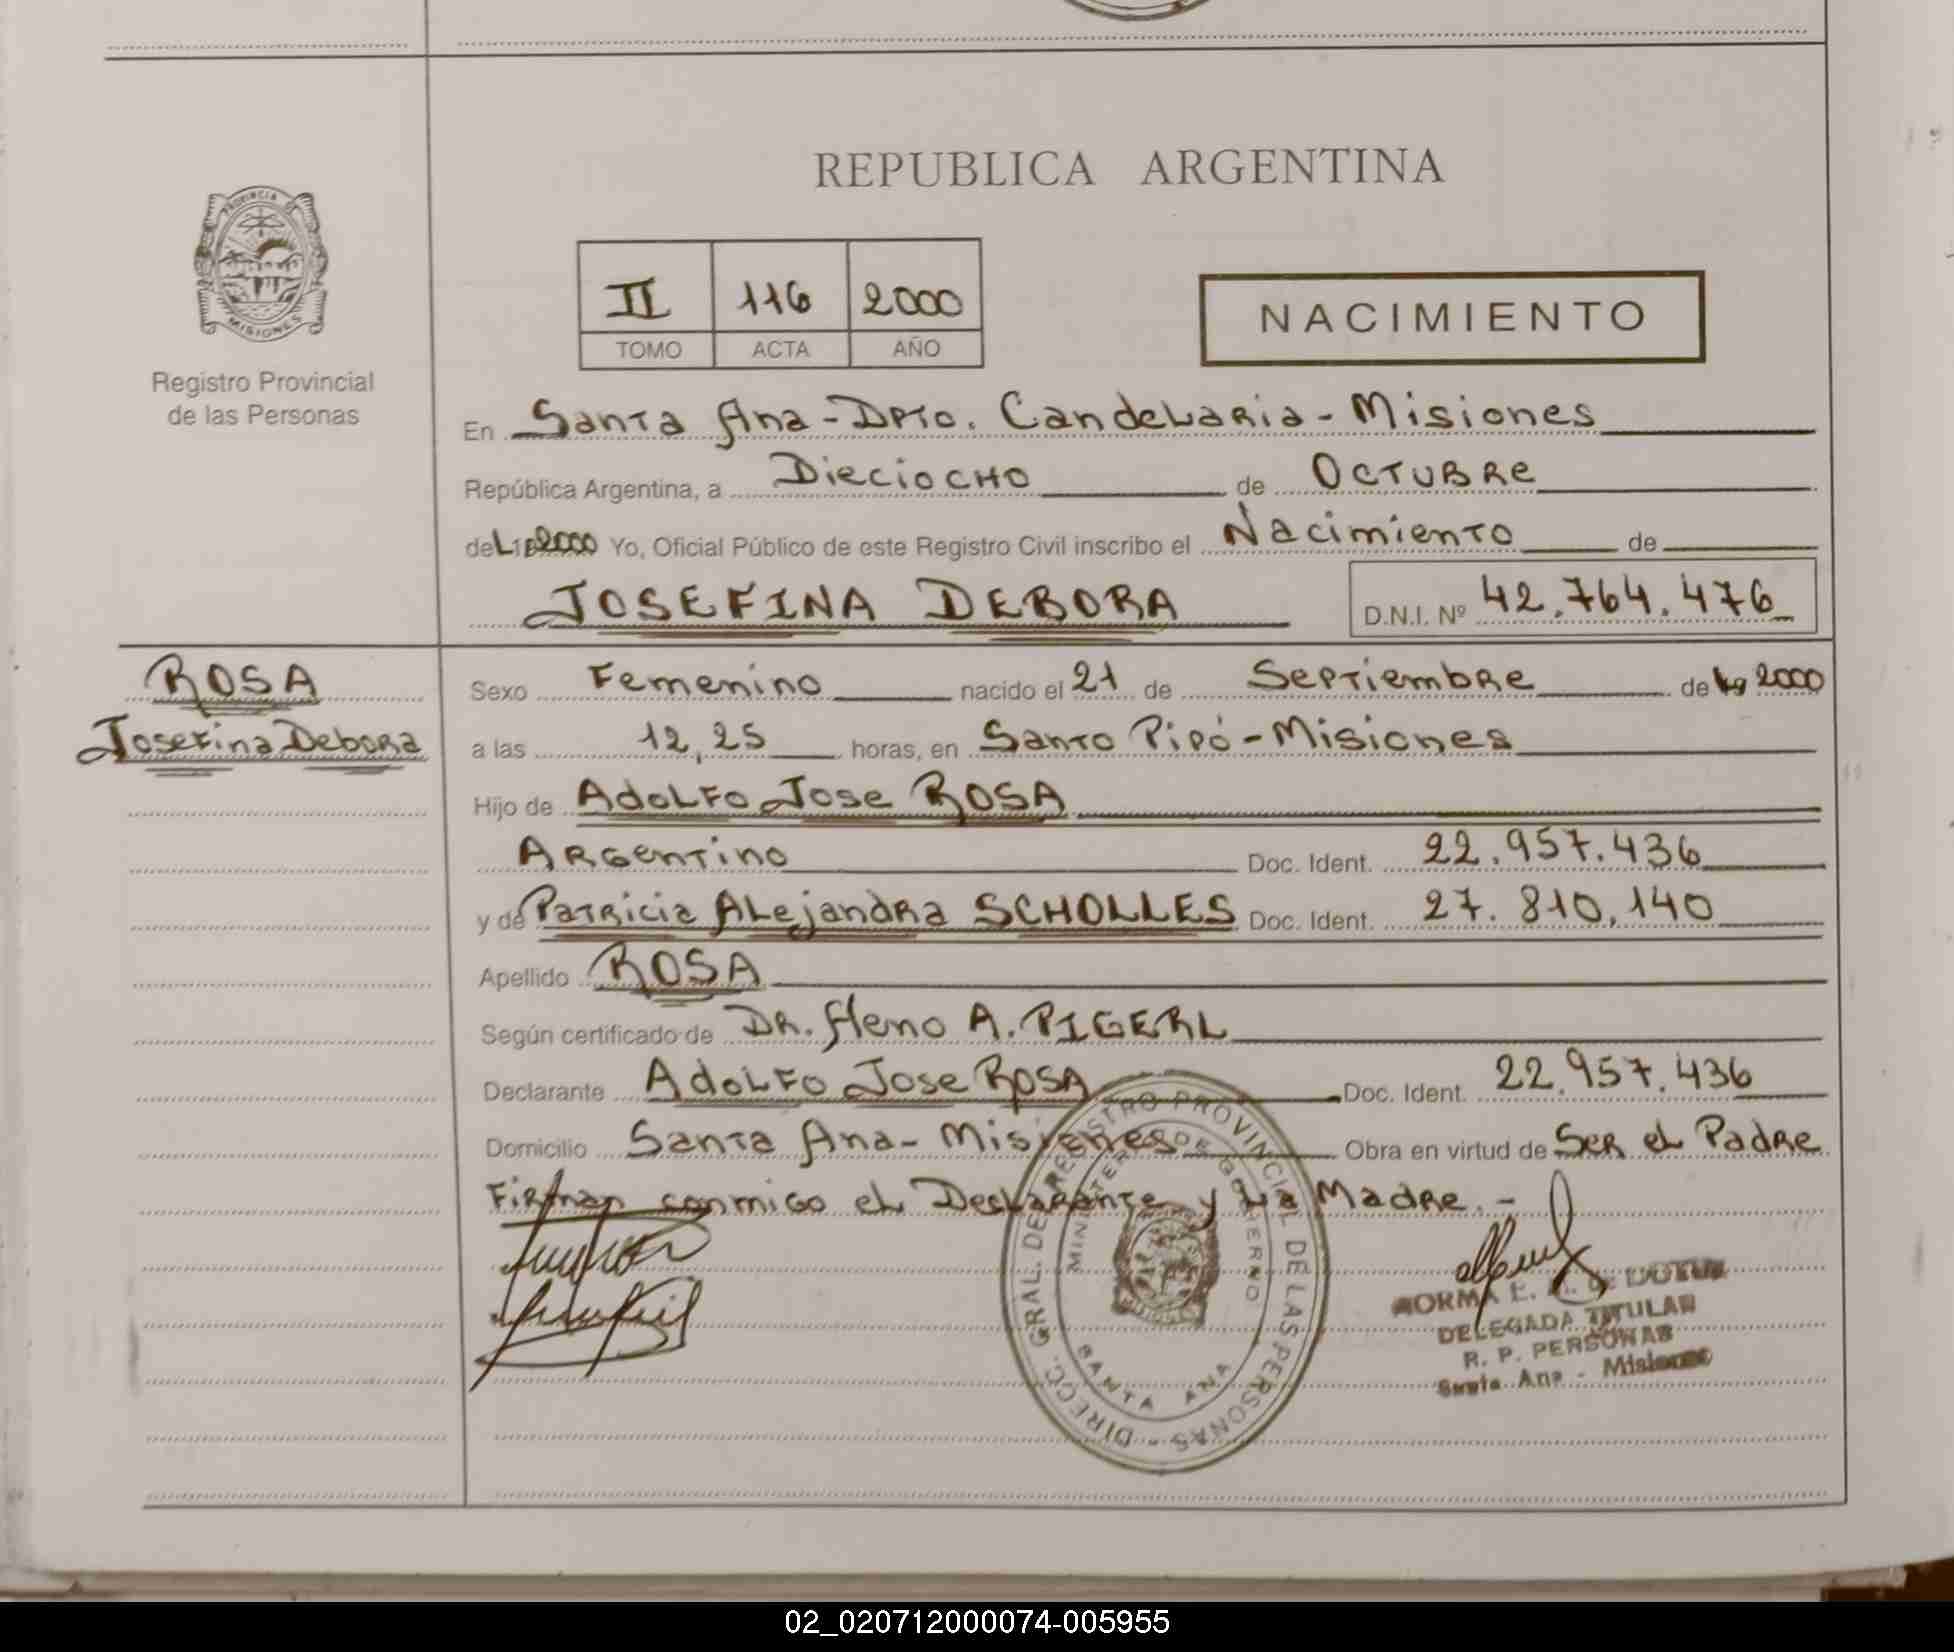 REPUBLICA ARGENTINA
PROVINCIA DE
MISIONES
Registro Provincial
de las Personas
II 116 2000
TOMO ACTA AÑO
NACIMIENTO
En Santa Ana - Dpto. Candelaria - Misiones
República Argentina, a Dieciocho de Octubre
del 2000 Yo, Oficial Público de este Registro Civil inscribo el Nacimiento de
JOSEFINA DEBORA D.N.I. Nº 42.764.476
ROSA
Josefina Debora
Sexo Femenino nacido el 21 de Septiembre de 2000
a las 12,25 horas, en Santo Pipó - Misiones
Hijo de Adolfo Jose ROSA
Argentino Doc. Ident. 22.957.436
y de Patricia Alejandra SCHOLLES Doc. Ident. 27.810.140
Apellido ROSA
Según certificado de DR. A. PIGERL
Declarante Adolfo Jose ROSA Doc. Ident. 22.957.436
Domicilio Santa Ana - Misiones Obra en virtud de Ser el Padre
Firman conmigo el Declarante y La Madre. -
DIRECC. GRAL. DE REGISTRO PROVINCIAL DE LAS PERSONAS -
MINISTERIO DE GOBIERNO
SANTA ANA
NORMA E.
DELEGADA TITULAR
R. P. PERSONAS
Santa Ana - Misiones
02_020712000074-005955